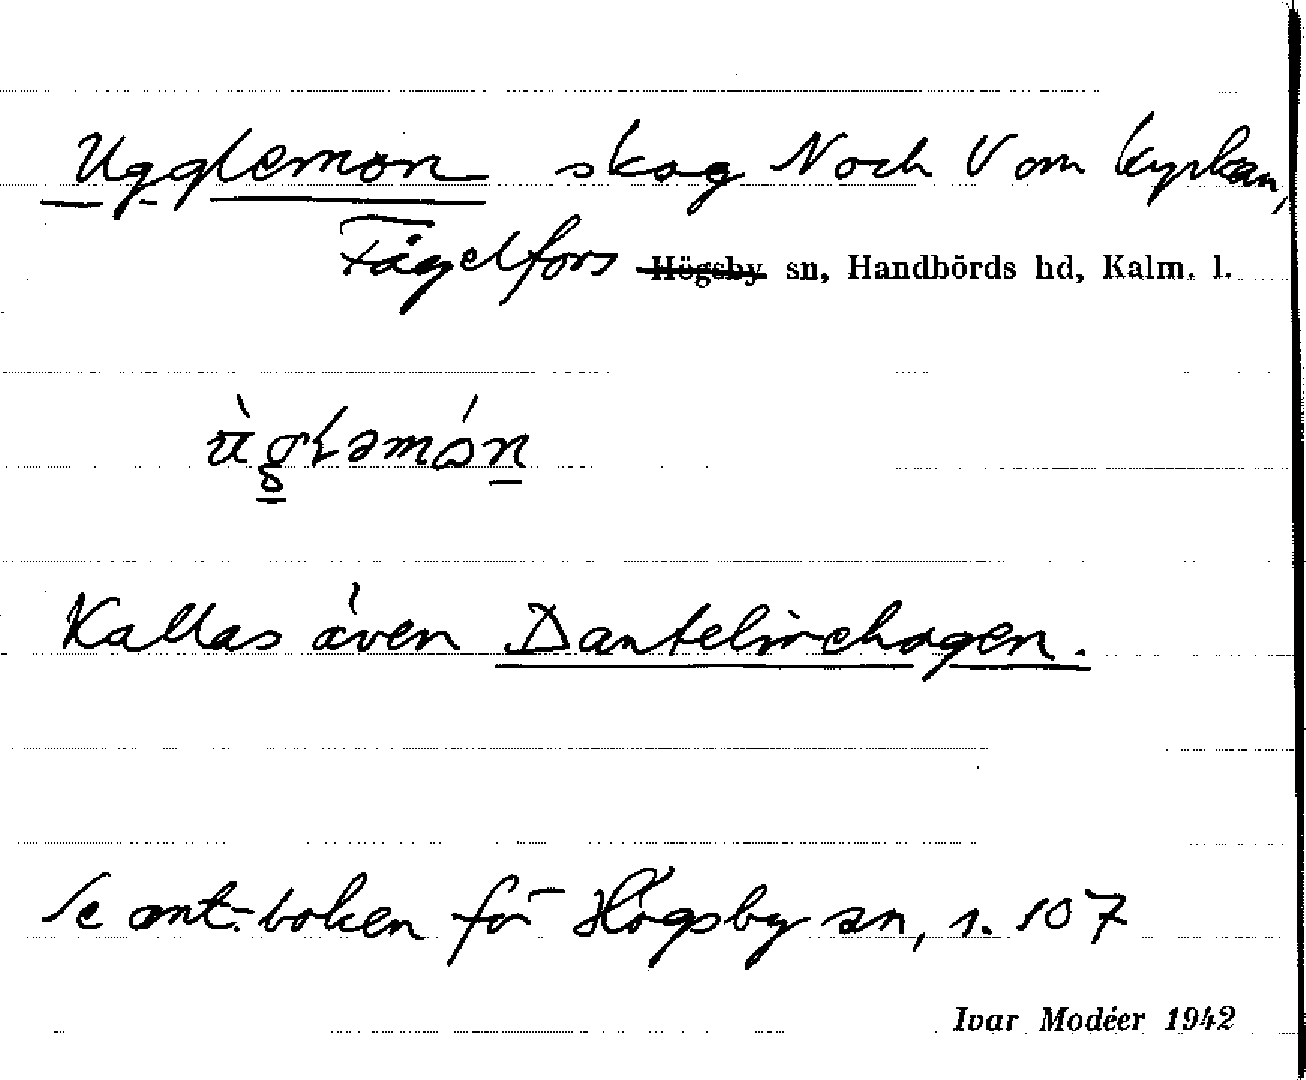 Ugglemon skog N och V om kyrkan,
Fågelfors Högsby sn, Handbörds hd, Kalm. l.
Kallas även Dantelirehagen.
Se ant.-boken för Högsby sn, s. 107
Ivar Modéer 1942